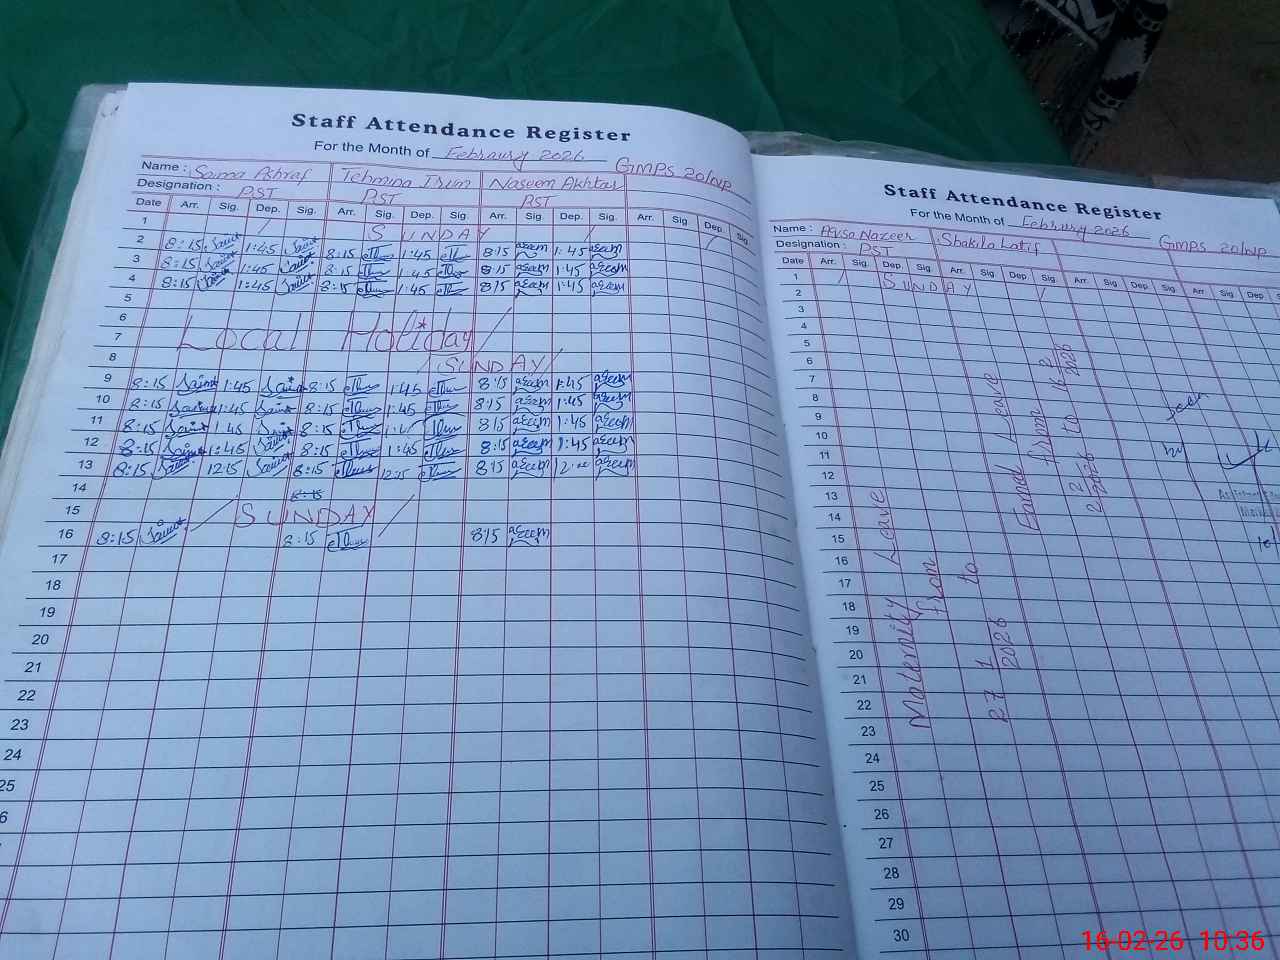 Staff Attendance Register
For the Month of Febraury 2026 GMPS 20/NP
Name : Saima Ashraf Tehmina Irum Naseem Akhtar
Designation : PST PST PST
Date Arr. Sig. Dep. Sig. Arr. Sig. Dep. Sig. Arr. Sig. Dep. Sig. Arr. Sig. Dep. Sig.
1 SUNDAY
2 8:15 1:45 8:15 1:45 8:15 1:45
3 8:15 1:45 8:15 1:45 8:15 1:45
4 8:15 1:45 8:15 1:45 8:15 1:45
5
6
7 Local Holiday
8 SUNDAY
9 8:15 1:45 8:15 1:45 8:15 1:45
10 8:15 1:45 8:15 1:45 8:15 1:45
11 8:15 1:45 8:15 8:15 1:45
12 8:15 1:45 8:15 1:45 8:15 1:45
13 8:15 12:15 8:15 12:15 8:15
14
15 SUNDAY
16 8:15 8:15 8:15
17
18
19
20
21
22
23
24
25
Staff Attendance Register
For the Month of February 2026 GMPS 20/NP
Name : Nazeer Shakila Latif
Designation : PST
Date Arr. Sig. Dep. Sig. Arr. Sig. Dep. Sig. Arr. Sig. Dep. Sig. Arr. Sig. Dep.
1 SUNDAY
2
3
4
5
6
7
8
9
10
11
12
13
14
15
16
17
18
19
20
21
22
23
24
25
26
27
28
29
30
Maternity Leave
from
27 1 2026 to
Leave
from
2 2 2026 to 2 2026
Seen
16-02-26 10:36